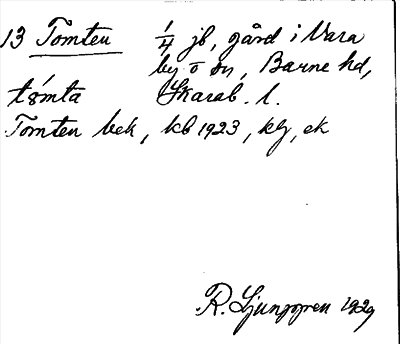 13 Tomten 1/4 jb, gård i Vara
by o sn, Barne hd,
tåmta Skarab. l.
Tomten bek, kb 1923, kg, ek
R. Ljunggren 1929